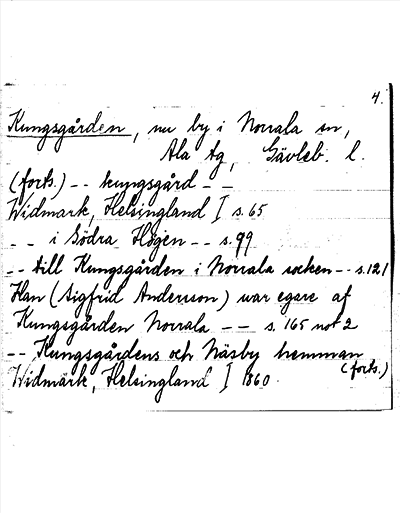 4.
Kungsgården, nu by i Norrala sn,
Ala tg, Gävleb. l.
(forts.) -- kungsgård --
Widmark, Helsingland I s. 65
-- i Södra Högen -- s. 99
-- till Kungsgården i Norrala socken -- s. 121
Han (Sigfrid Andersson) war egare af
Kungsgården Norrala -- s. 165 not 2
-- Kungsgårdens och Näsby hemman
(forts.)
Widmark, Helsingland I 1860.